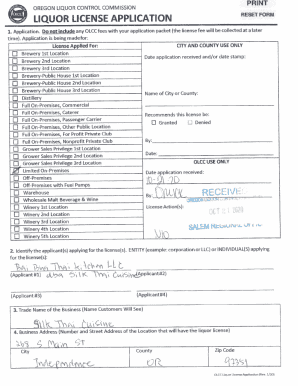 PRINT
RESET FORM
OREGON LIQUOR CONTROL COMMISSION
LIQUOR LICENSE APPLICATION
1. Application. Do not include any OLCC fees with your application packet (the license fee will be collected at a later
time). Application is being made for:
License Applied For:
Brewery 1st Location
Brewery 2nd Location
Brewery 3rd Location
Brewery-Public House 1st Location
Brewery-Public House 2nd Location
Brewery-Public House 3rd Location
Distillery
Full On-Premises, Commercial
Full On-Premises, Caterer
Full On-Premises, Passenger Carrier
Full On-Premises, Other Public Location
Full On-Premises, For Profit Private Club
Full On-Premises, Nonprofit Private Club
Grower Sales Privilege 1st Location
Grower Sales Privilege 2nd Location
Grower Sales Privilege 3rd Location
Limited On-Premises
Off-Premises
Off-Premises with Fuel Pumps
Warehouse
Wholesale Malt Beverage & Wine
Winery 1st Location
Winery 2nd Location
Winery 3rd Location
Winery 4th Location
Winery 5th Location
CITY AND COUNTY USE ONLY
Date application received and/or date stamp:
Name of City or County:
Recommends this license be:
Granted Denied
By:
Date:
OLCC USE ONLY
Date application received:
By:
RECEIVE
License Action(s):
OCT
SALEM REGIONAL
2. Identify the applicant(s) applying for the license(s). ENTITY (example: corporation or LLC) or INDIVIDUAL(S) applying
for the license(s):
Thai Kitchen LLC
(Applicant #1) dba Silk Thai Cuisine (Applicant #2)
(Applicant #3) (Applicant #4)
3. Trade Name of the Business (Name Customers Will See)
Silk Thai Cuisine
4. Business Address (Number and Street Address of the Location that will have the liquor license)
S Main St
City County Zip Code
Independence OR 97351